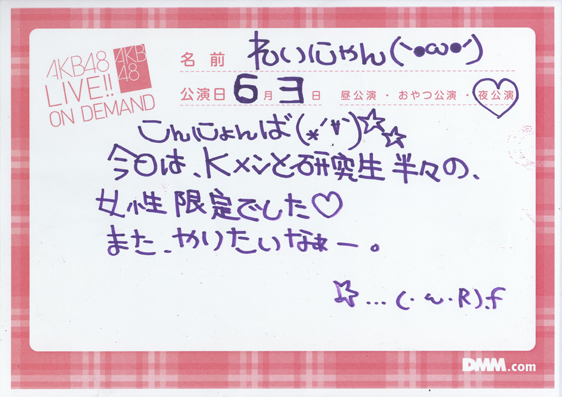 AKB48
LIVE!!
ON DEMAND
AKB
48
名前 れいにゃん(`•ω•´)
公演日 6月3日 昼公演・おやつ公演・夜公演
こんにょんば(*´∀`)☆☆
今日は、Kメンと研究生半々の、
女性限定でした♡
また、やりたいなぁー。
☆...(・ω・R).f
DMM.com